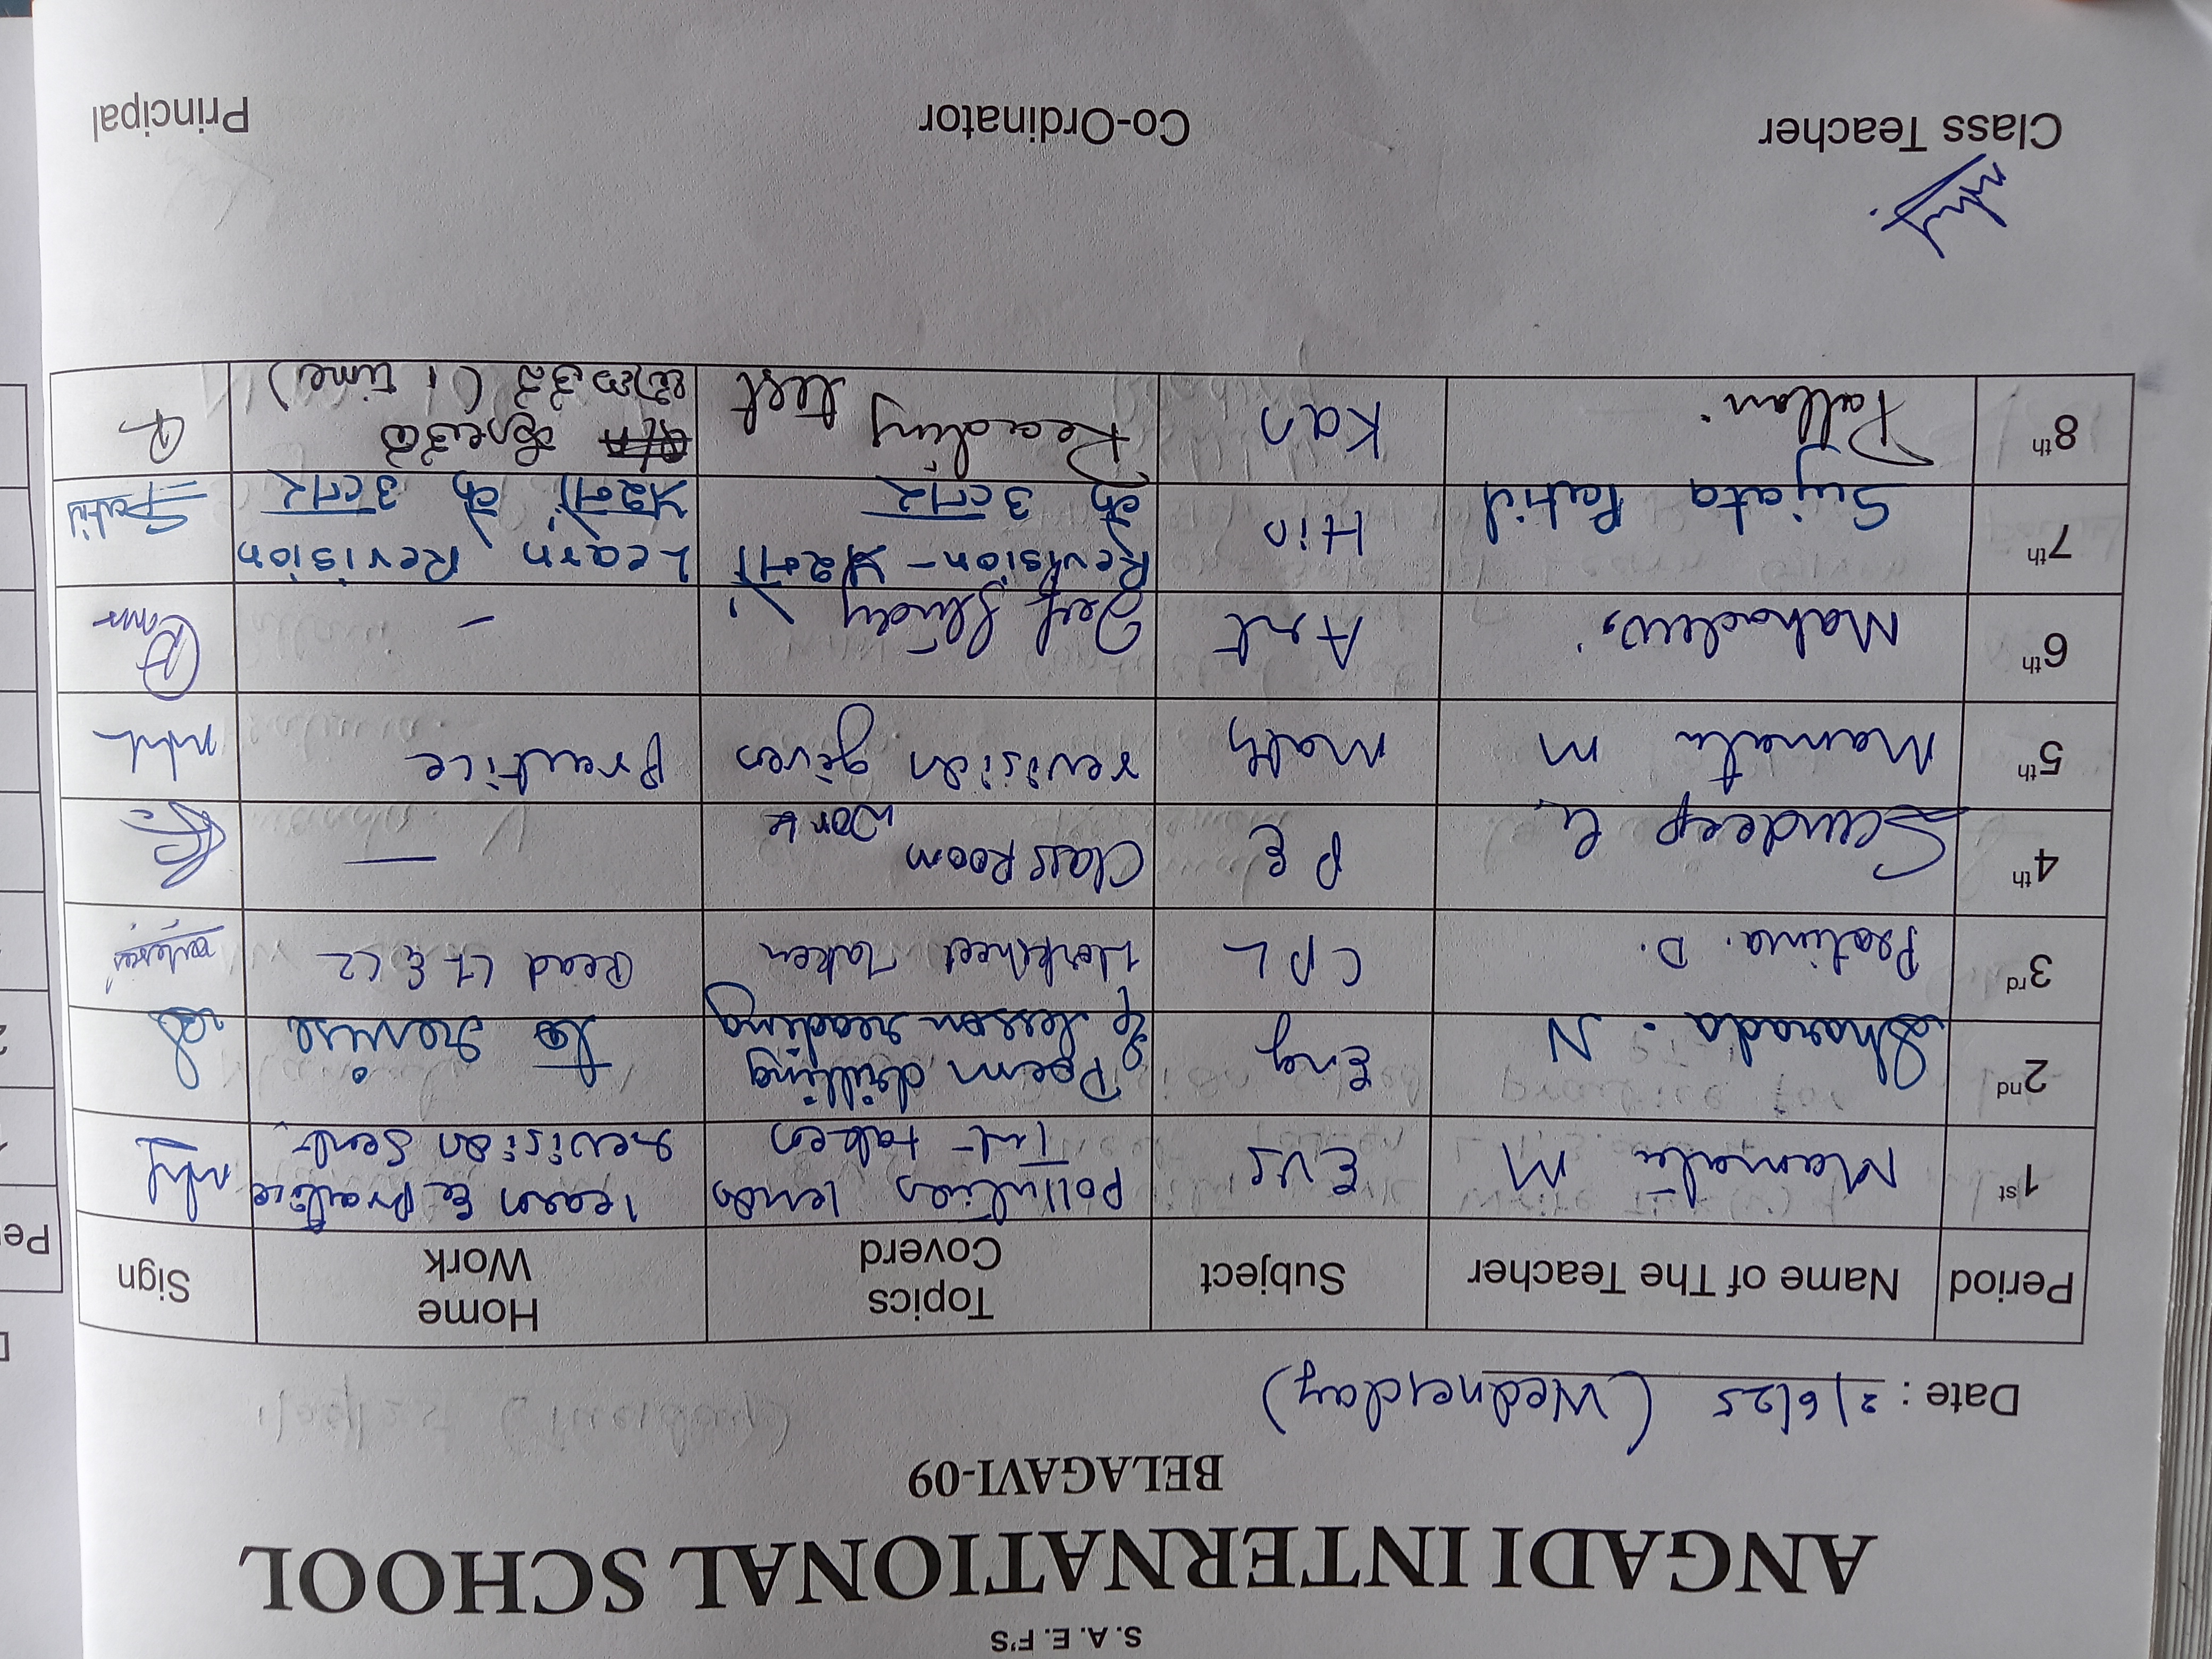 S. A. E. F'S
ANGADI INTERNATIONAL SCHOOL
BELAGAVI-09
Date : 2/6/25 (Wednesday)
Period Name of The Teacher Subject Topics Coverd Home Work Sign
1st Mamata M EVS Pollution lesson Test taken learn & practice revision sent.
2nd Sharada. N Eng Poem drilling & lesson reading to revise
3rd Pratima. D. CPL Worksheet Taken Read L1 & L2
4th Sandeep G PE Class Room Work —
5th Mamata M Math revision given Practice
6th Mahadevi Art Self Study –
7th Sujata Patil Hin Revision- Learn Revision SPatil
8th Pallavi Kan Reading test (1 time)
Class Teacher Co-Ordinator Principal
Pe